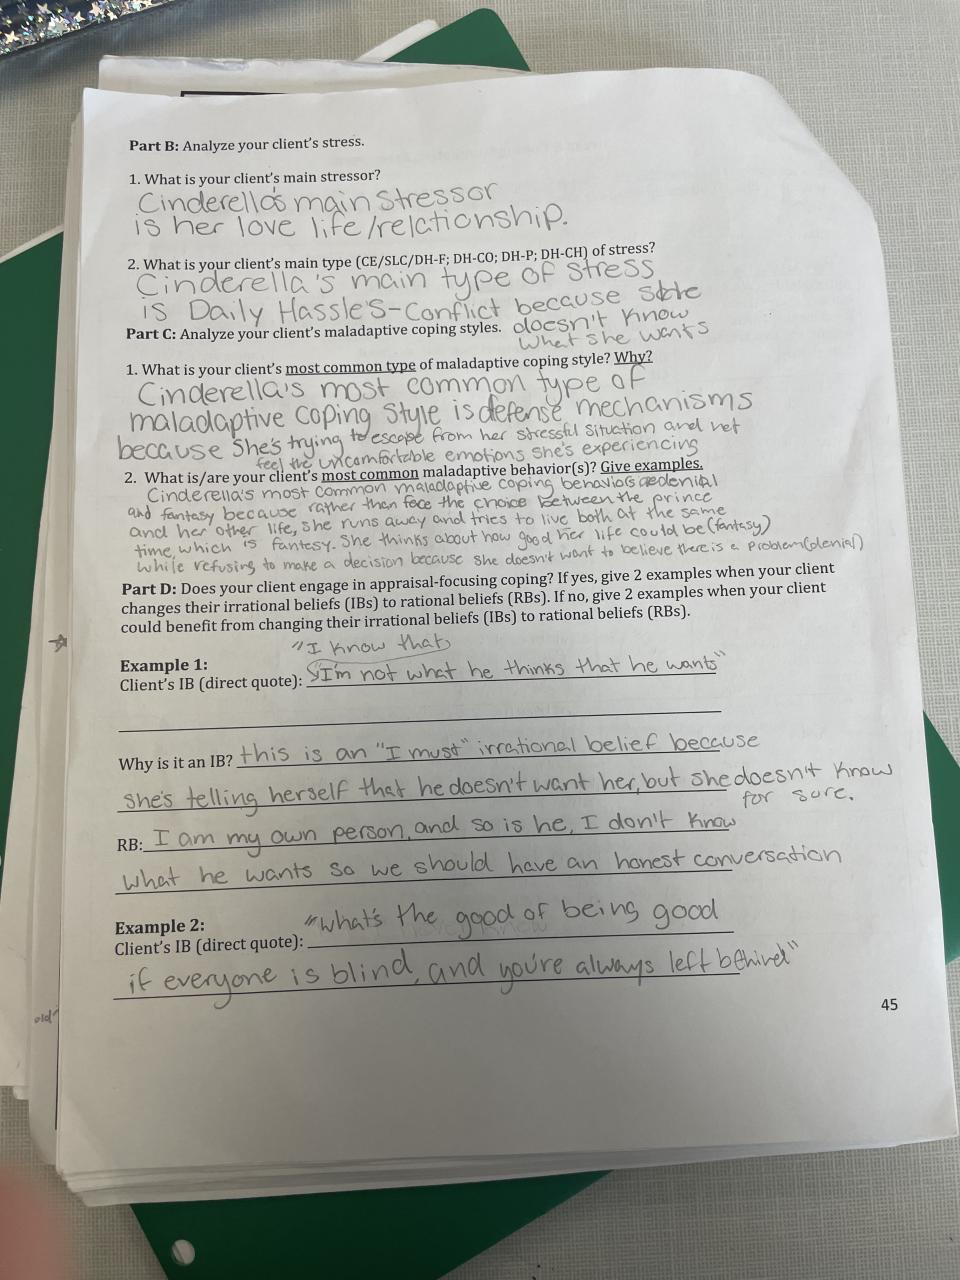 Part B: Analyze your client's stress.
1. What is your client's main stressor?
Cinderella's main stressor
is her love life/relationship.
2. What is your client's main type (CE/SLC/DH-F; DH-CO; DH-P; DH-CH) of stress?
Cinderella's main type of stress
is Daily Hassle's-Conflict because she
doesn't know
what she wants
Part C: Analyze your client's maladaptive coping styles.
1. What is your client's most common type of maladaptive coping style? Why?
Cinderella's most common type of
maladaptive coping style is defense mechanisms
because she's trying to escape from her stressful situation and not
feel the uncomfortable emotions she's experiencing
2. What is/are your client's most common maladaptive behavior(s)? Give examples.
Cinderella's most common maladaptive coping behaviors denial
and fantasy because rather than face the choice between the prince
and her other life, she runs away and tries to live both at the same
time, which is fantesy. She thinks about how good her life could be (fantasy)
while refusing to make a decision because she doesn't want to believe there is a problem (denial)
Part D: Does your client engage in appraisal-focusing coping? If yes, give 2 examples when your client
changes their irrational beliefs (IBs) to rational beliefs (RBs). If no, give 2 examples when your client
could benefit from changing their irrational beliefs (IBs) to rational beliefs (RBs).
"I know that
Example 1:
Client's IB (direct quote): I'm not what he thinks that he wants"
Why is it an IB? this is an "I must" irrational belief because
she's telling herself that he doesn't want her, but she doesn't know
for sure.
RB: I am my own person, and so is he, I don't know
what he wants so we should have an honest conversation
Example 2:
Client's IB (direct quote): "what's the good of being good
if everyone is blind, and you're always left behind"
45
old